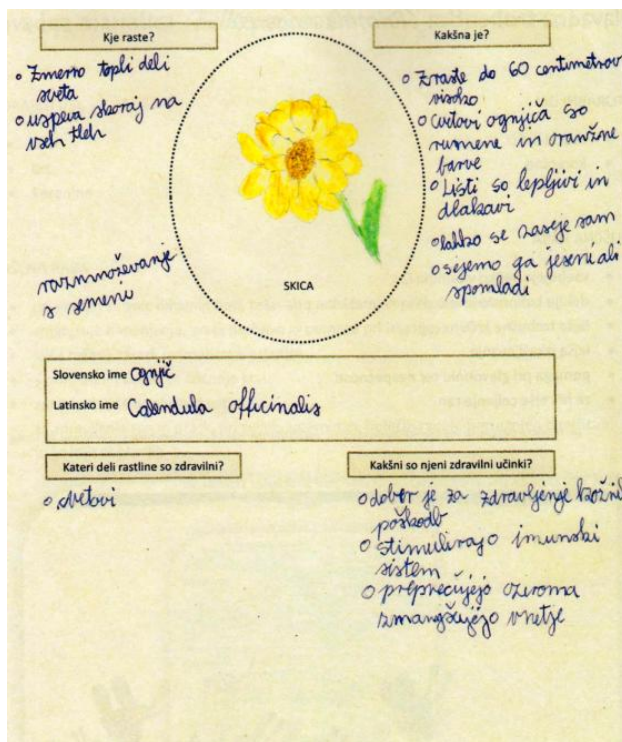 Kje raste?
• Zmerno topli deli
sveta
• uspeva skoraj na
vseh tleh
razmnoževanje
s semeni
SKICA
Kakšna je?
• Zraste do 60 centimetrov
visoko
• Cvetovi ognjiča so
rumene in oranžne
barve
• Listi so lepljivi in
dlakavi
• lahko se zaseje sam
• sejemo ga jeseni ali
spomladi
Slovensko ime Ognjič
Latinsko ime Calendula officinalis
Kateri deli rastline so zdravilni?
• cvetovi
Kakšni so njeni zdravilni učinki?
• dober je za zdravljenje kožnih
poškodb
• stimulirajo imunski
sistem
• preprečujejo oziroma
zmanjšujejo vnetje